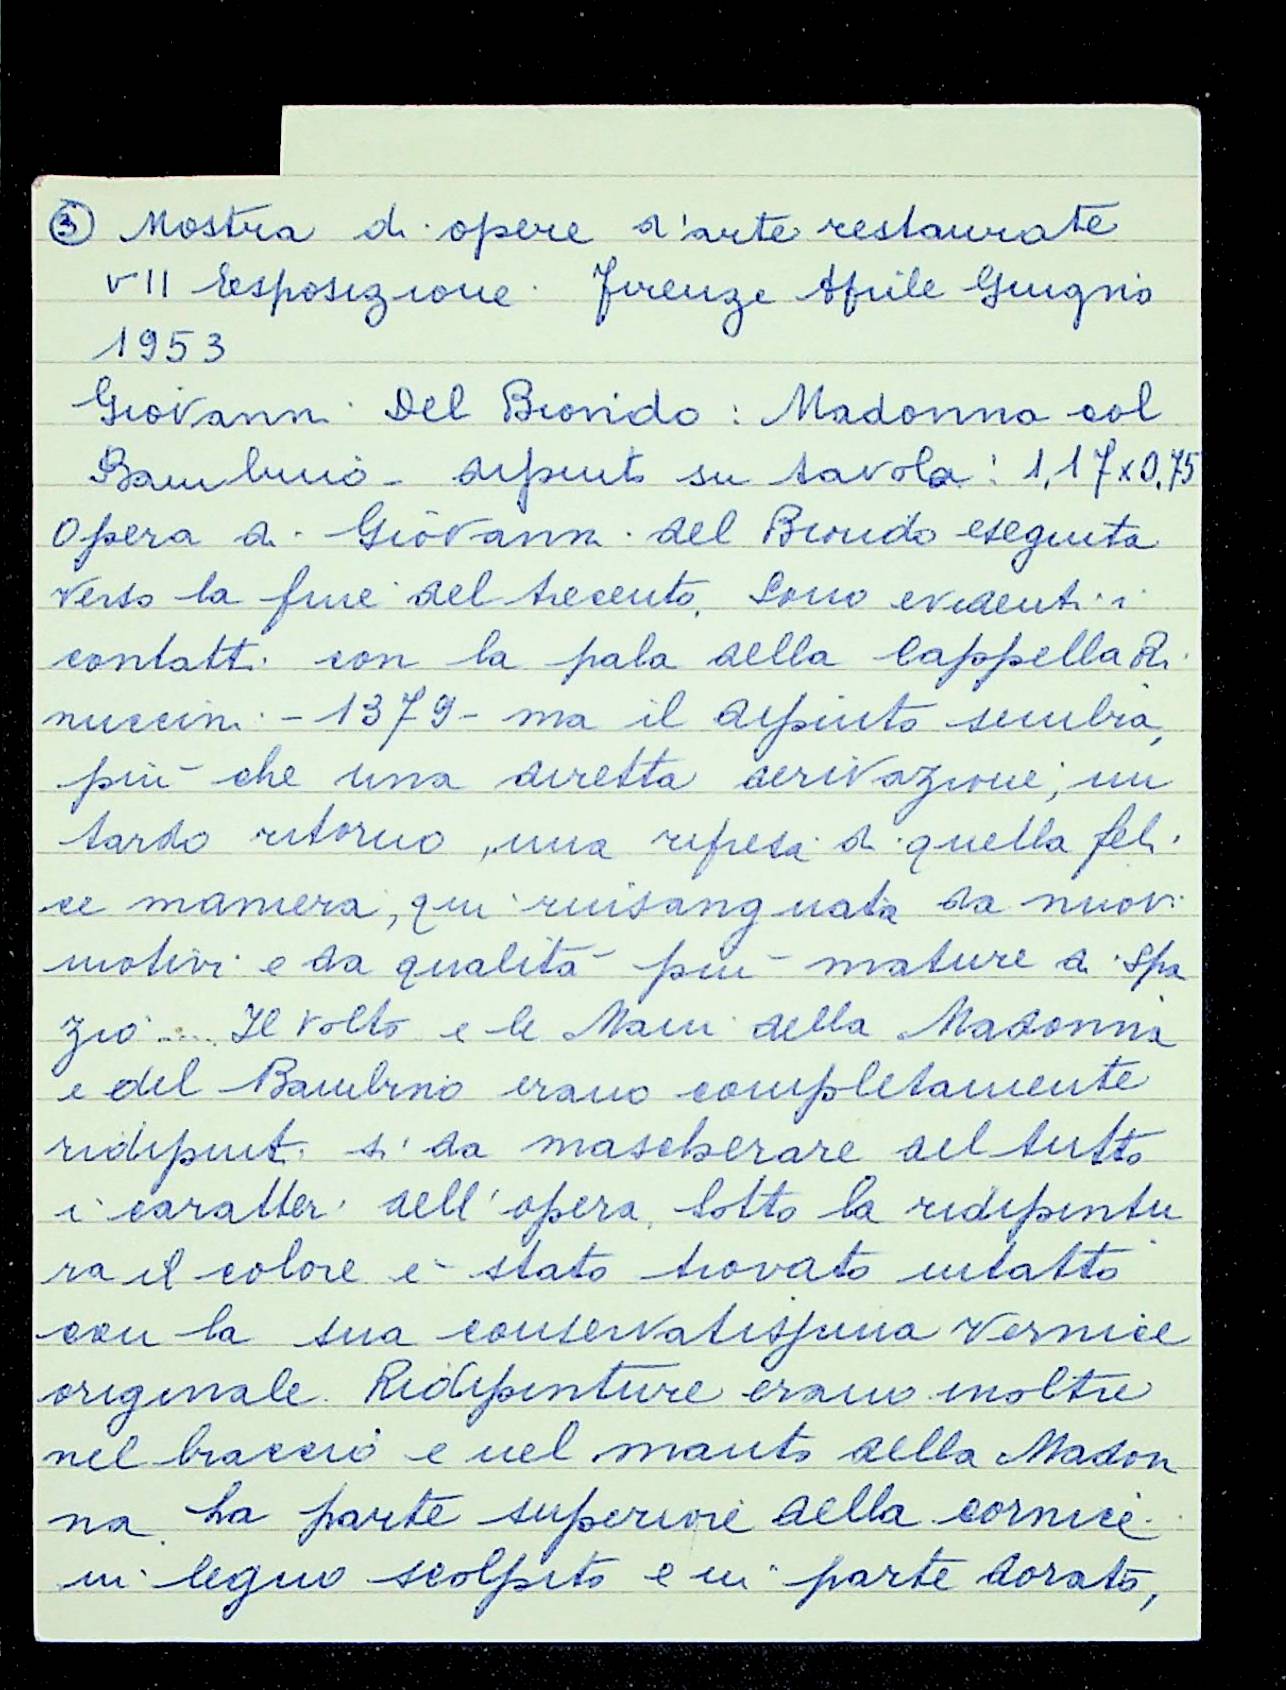 ③ Mostra di opere d'arte restaurate
VII Esposizione Firenze Aprile Giugno
1953
Giovanni Del Biondo : Madonna col
Bambino - dipinto su tavola : 1,17x0,75
Opera di Giovanni del Biondo eseguita
verso la fine del trecento. Sono evidenti i
contatti con la pala della Cappella Ri
nuccini - 1379 - ma il dipinto sembra,
più che una diretta derivazione, un
tardo ritorno, una ripresa di quella feli
ce maniera, qui rinsanguata da nuovi
motivi e da qualità più mature di spa
zio .... Il volto e le Mani della Madonna
e del Bambino erano completamente
ridipinti sì da mascherare del tutto
i caratteri dell'opera. Sotto la ridipintu
ra il colore è stato trovato intatto
con la sua conservatissima vernice
originale. Ridipinture erano inoltre
nel braccio e nel manto della Madon
na. La parte superiore della cornice
in legno scolpito e in parte dorato,